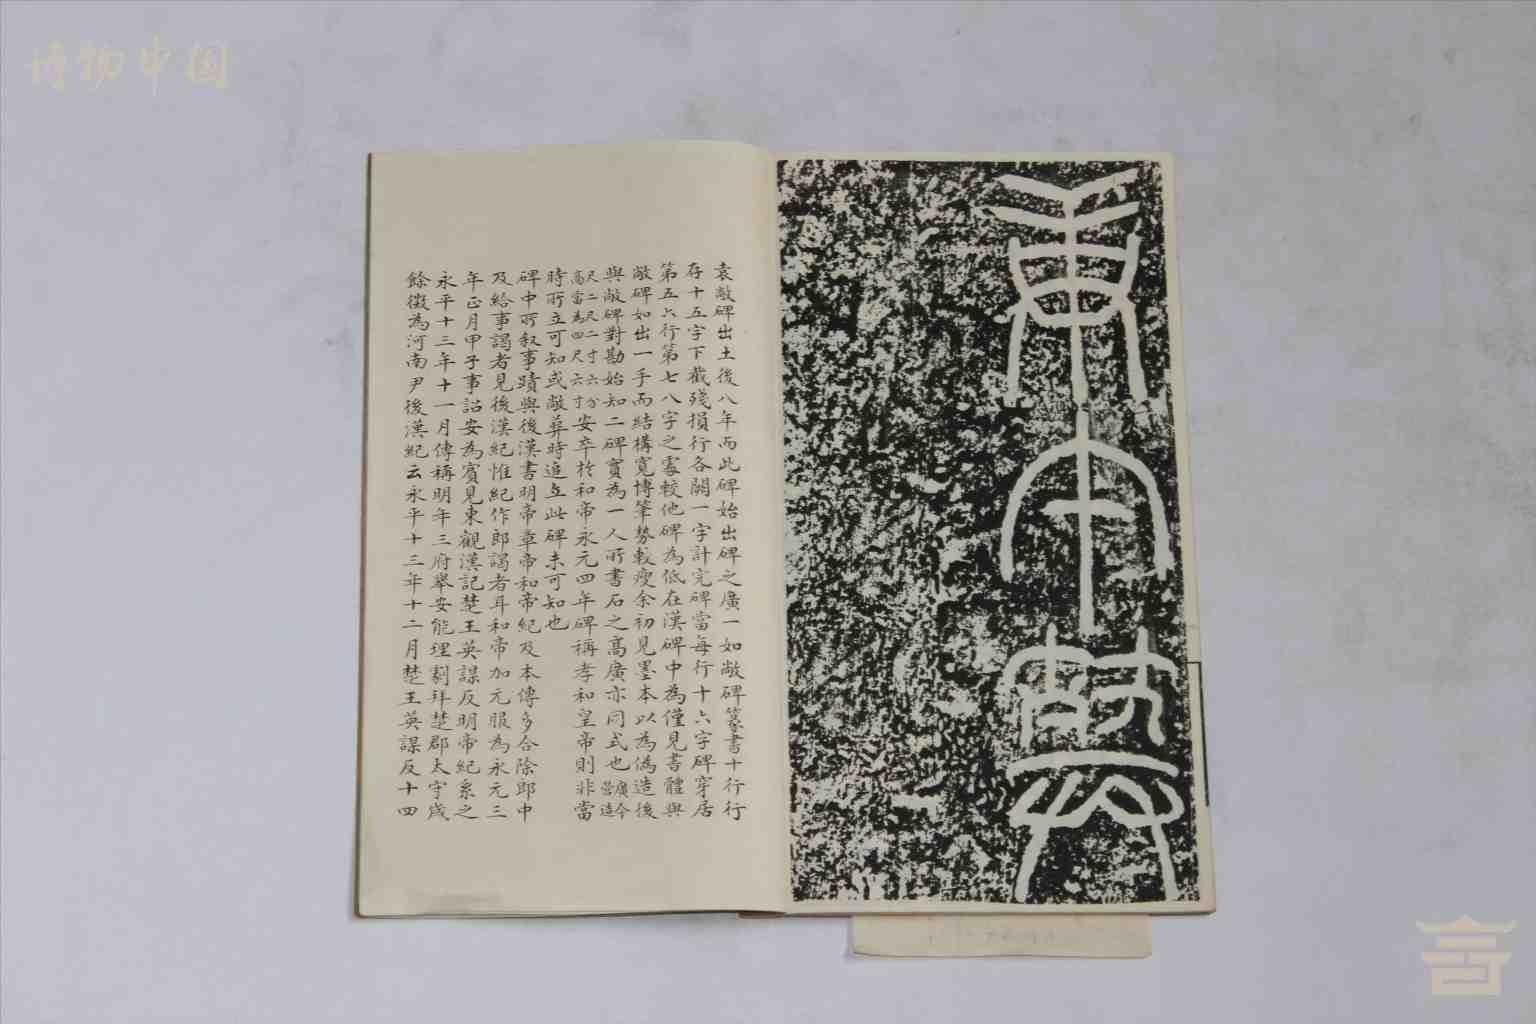 博物中国
庚午葬
袁敞碑出土後八年而此碑始出碑之廣一如敞碑篆書十行行
存十五字下截殘損行各闕一字計完碑當每行十六字碑穿居
第五六行第七八字之處較他碑為低在漢碑中為僅見書體與
敞碑如出一手而結構寬博筆勢較瘦余初見墨本以為偽造後
與敞碑對勘始知二碑實為一人所書石之高廣亦同式也廣今營造
尺二尺二寸六分高當為四尺六寸安卒於和帝永元四年碑稱孝和皇帝則非當
時所立可知或敞葬時追立此碑未可知也
碑中所叙事蹟與後漢書明帝章帝和帝紀及本傳多合除郎中
及給事謁者見後漢紀惟紀作郎謁者耳和帝加元服為永元三
年正月甲子事詔安為賓見東觀漢記楚王英謀反明帝紀系之
永平十三年十一月傳稱明年三府舉安能理劇拜楚郡太守歲
餘徵為河南尹後漢紀云永平十三年十二月楚王英謀反十四